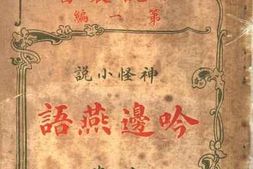 第一編
神怪小説
吟邊燕語